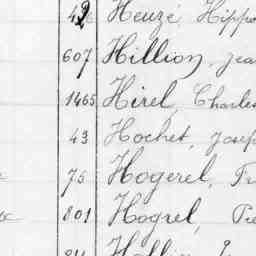 Heuzé, Hippo
607 Hillion, Jea
1465 Hirel, Charles
43 Hochet, Josep
75 Hogerel, Fr
801 Hogrel, Pie